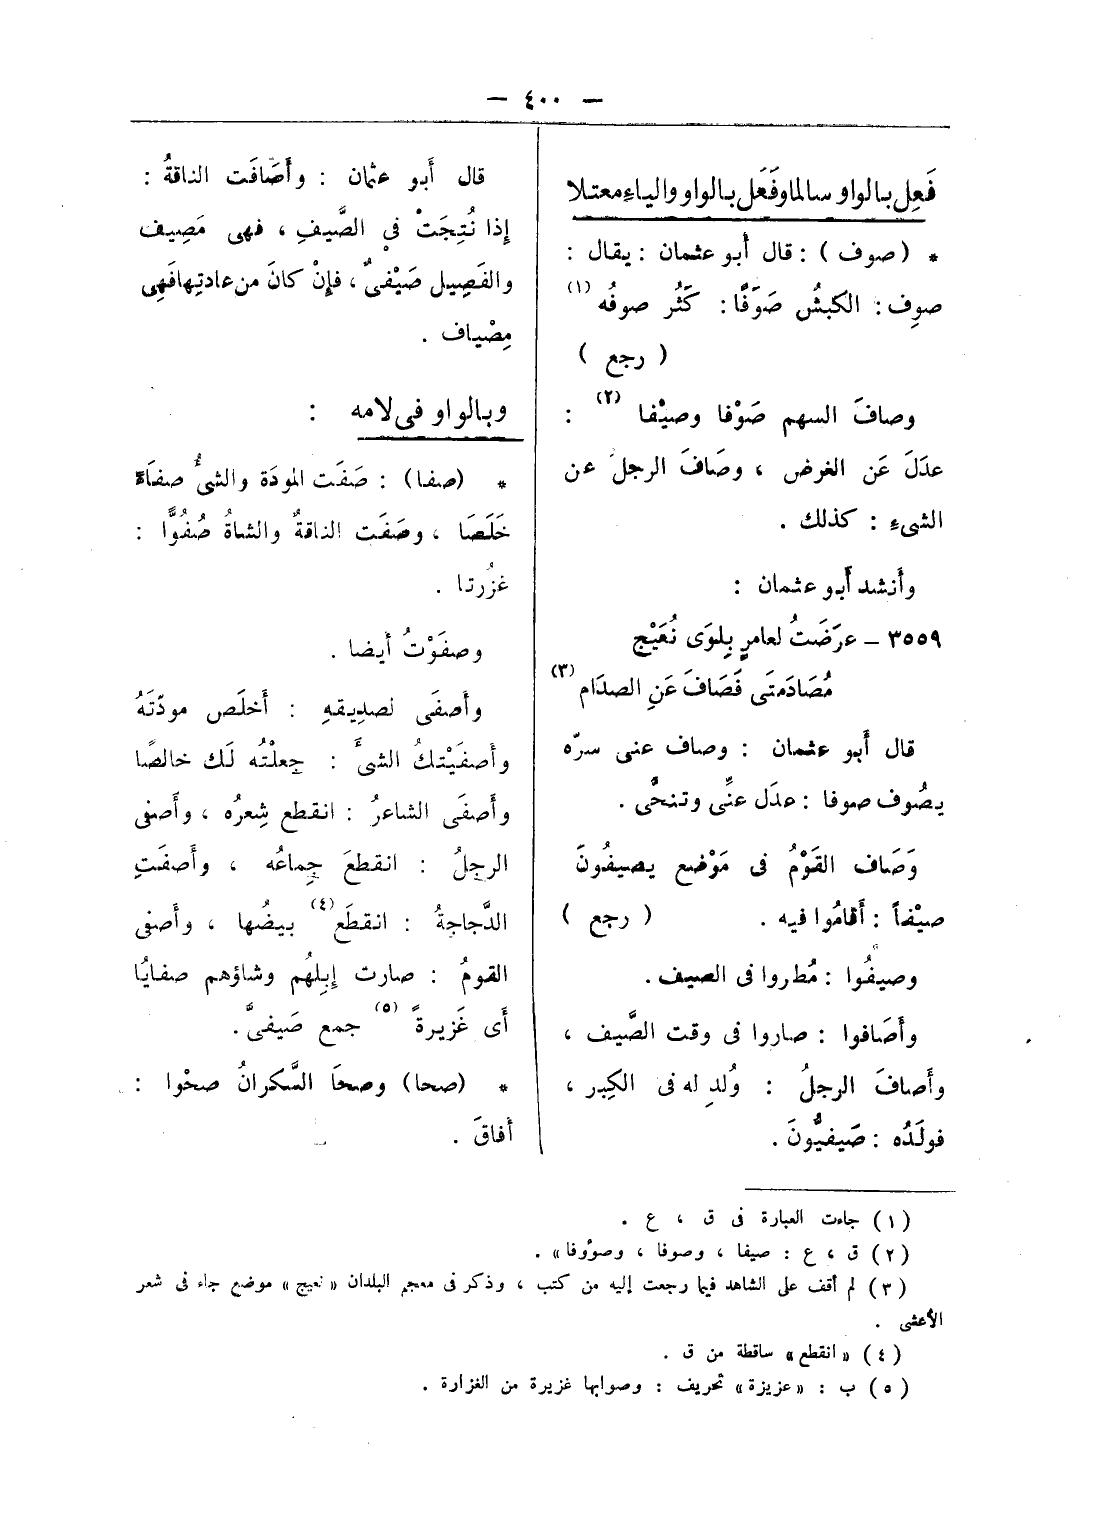 — ٤٠٠ —
فَعِل بالواو سالما وفَعَل بالواو والياءِ معتلا
* (صوف) : قال أبو عثمان : يقال :
صوِف : الكبشُ صَوَفًا : كَثُر صوفُه (١)
( رجع )
وصافَ السهم صَوْفا وصيْفا (٢) :
عدَلَ عَن الغرض ، وصَافَ الرجلُ عن
الشىءِ : كذلك .
وأنشد أبو عثمان :
٣٥٥٩ – عرَضَتُ لعامرٍ بِلوَى نُعَيْج
مُصَادَمتَى فَصَافَ عَنِ الصدَام (٣)
قال أَبو عثمان : وصاف عنى سرّه
يصُوف صوفا : عدَل عنِّى وتنحَّى .
وَصَاف القَوْمُ فى مَوْضع يصيفُونَ
صيْفاً : أَقامُوا فيه . ( رجع )
وصيفُوا : مُطروا فى الصيف .
وأَصَافوا : صاروا فى وقت الصَّيف ،
وأَصافَ الرجلُ : وُلد له فى الكِبر ،
فولَدُه : صَيفيُّونَ .
قال أَبو عثمان : وأَصَافَت الناقةُ :
إِذا نُتِجَتْ فى الصَّيفِ ، فهى مَصِيف
والفَصِيل صَيْفىٌ ، فإِنْ كانَ من عادتِها فَهِى
مِصْياف .
وبالواو فى لامه :
* (صفا) : صَفَت المودَة والشىُٔ صفَاءً
خَلَصَا ، وصَفَت الناقةُ والشاةُ صُفُوًّا :
غزُرتا .
وصفَوْتُ أيضا .
وأَصفَى لصدِيقهِ : أَخلَص مودّتَهُ
وأَصفَيْتكُ الشىَٔ : جعلْتُه لَك خالصًا
وأَصفَى الشاعرُ : انقطع شِعرُه ، وأَصفى
الرجلُ : انقطعَ جِماعُه ، وأَصفَتِ
الدَّجاجةُ : انقطَع (٤) بيضُها ، وأَصفى
القومُ : صارت إِبلهُم وشاؤهم صفايُا
أَى غَزيرةً (٥) جمع صَيفىَّ .
* (صحا) وصحَا السَّكرانُ صحْوا :
أفاقَ .
(١) جاءت العبارة فى ق ، ع .
(٢) ق ، ع : صيفا ، وصوفا ، وصوُوفا» .
(٣) لم أقف على الشاهد فيما رجعت إليه من كتب ، وذكر فى معجم البلدان «نعيج» موضع جاء فى شعر
الأعشى .
(٤) «انقطع» ساقطة من ق .
(٥) ب : «عزيزة» تحريف : وصوابها غزيرة من الغزارة .